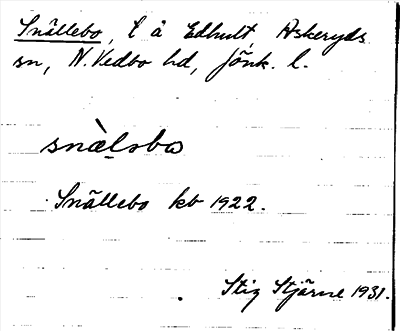 Snällebo, l å Edhult Askeryds
sn, N. Vedbo hd, Jönk. l.
snàlsbo
Snällebo kb 1922.
Stig Stjärne 1931.